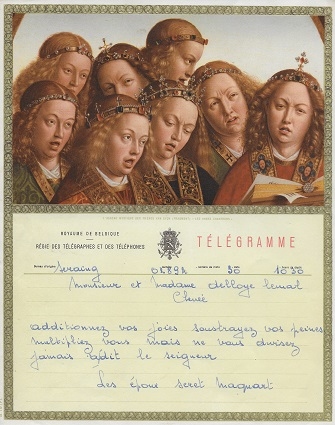 ROYAUME DE BELGIQUE
RÉGIE DES TÉLÉGRAPHES ET DES TÉLÉPHONES
TÉLÉGRAMME
Seraing 30 1030
Monsieur et Madame
Chenée
additionnez vos joies soustrayez vos peines
multipliez vous mais ne vous divisez
jamais dit le seigneur
Les époux seret maquart